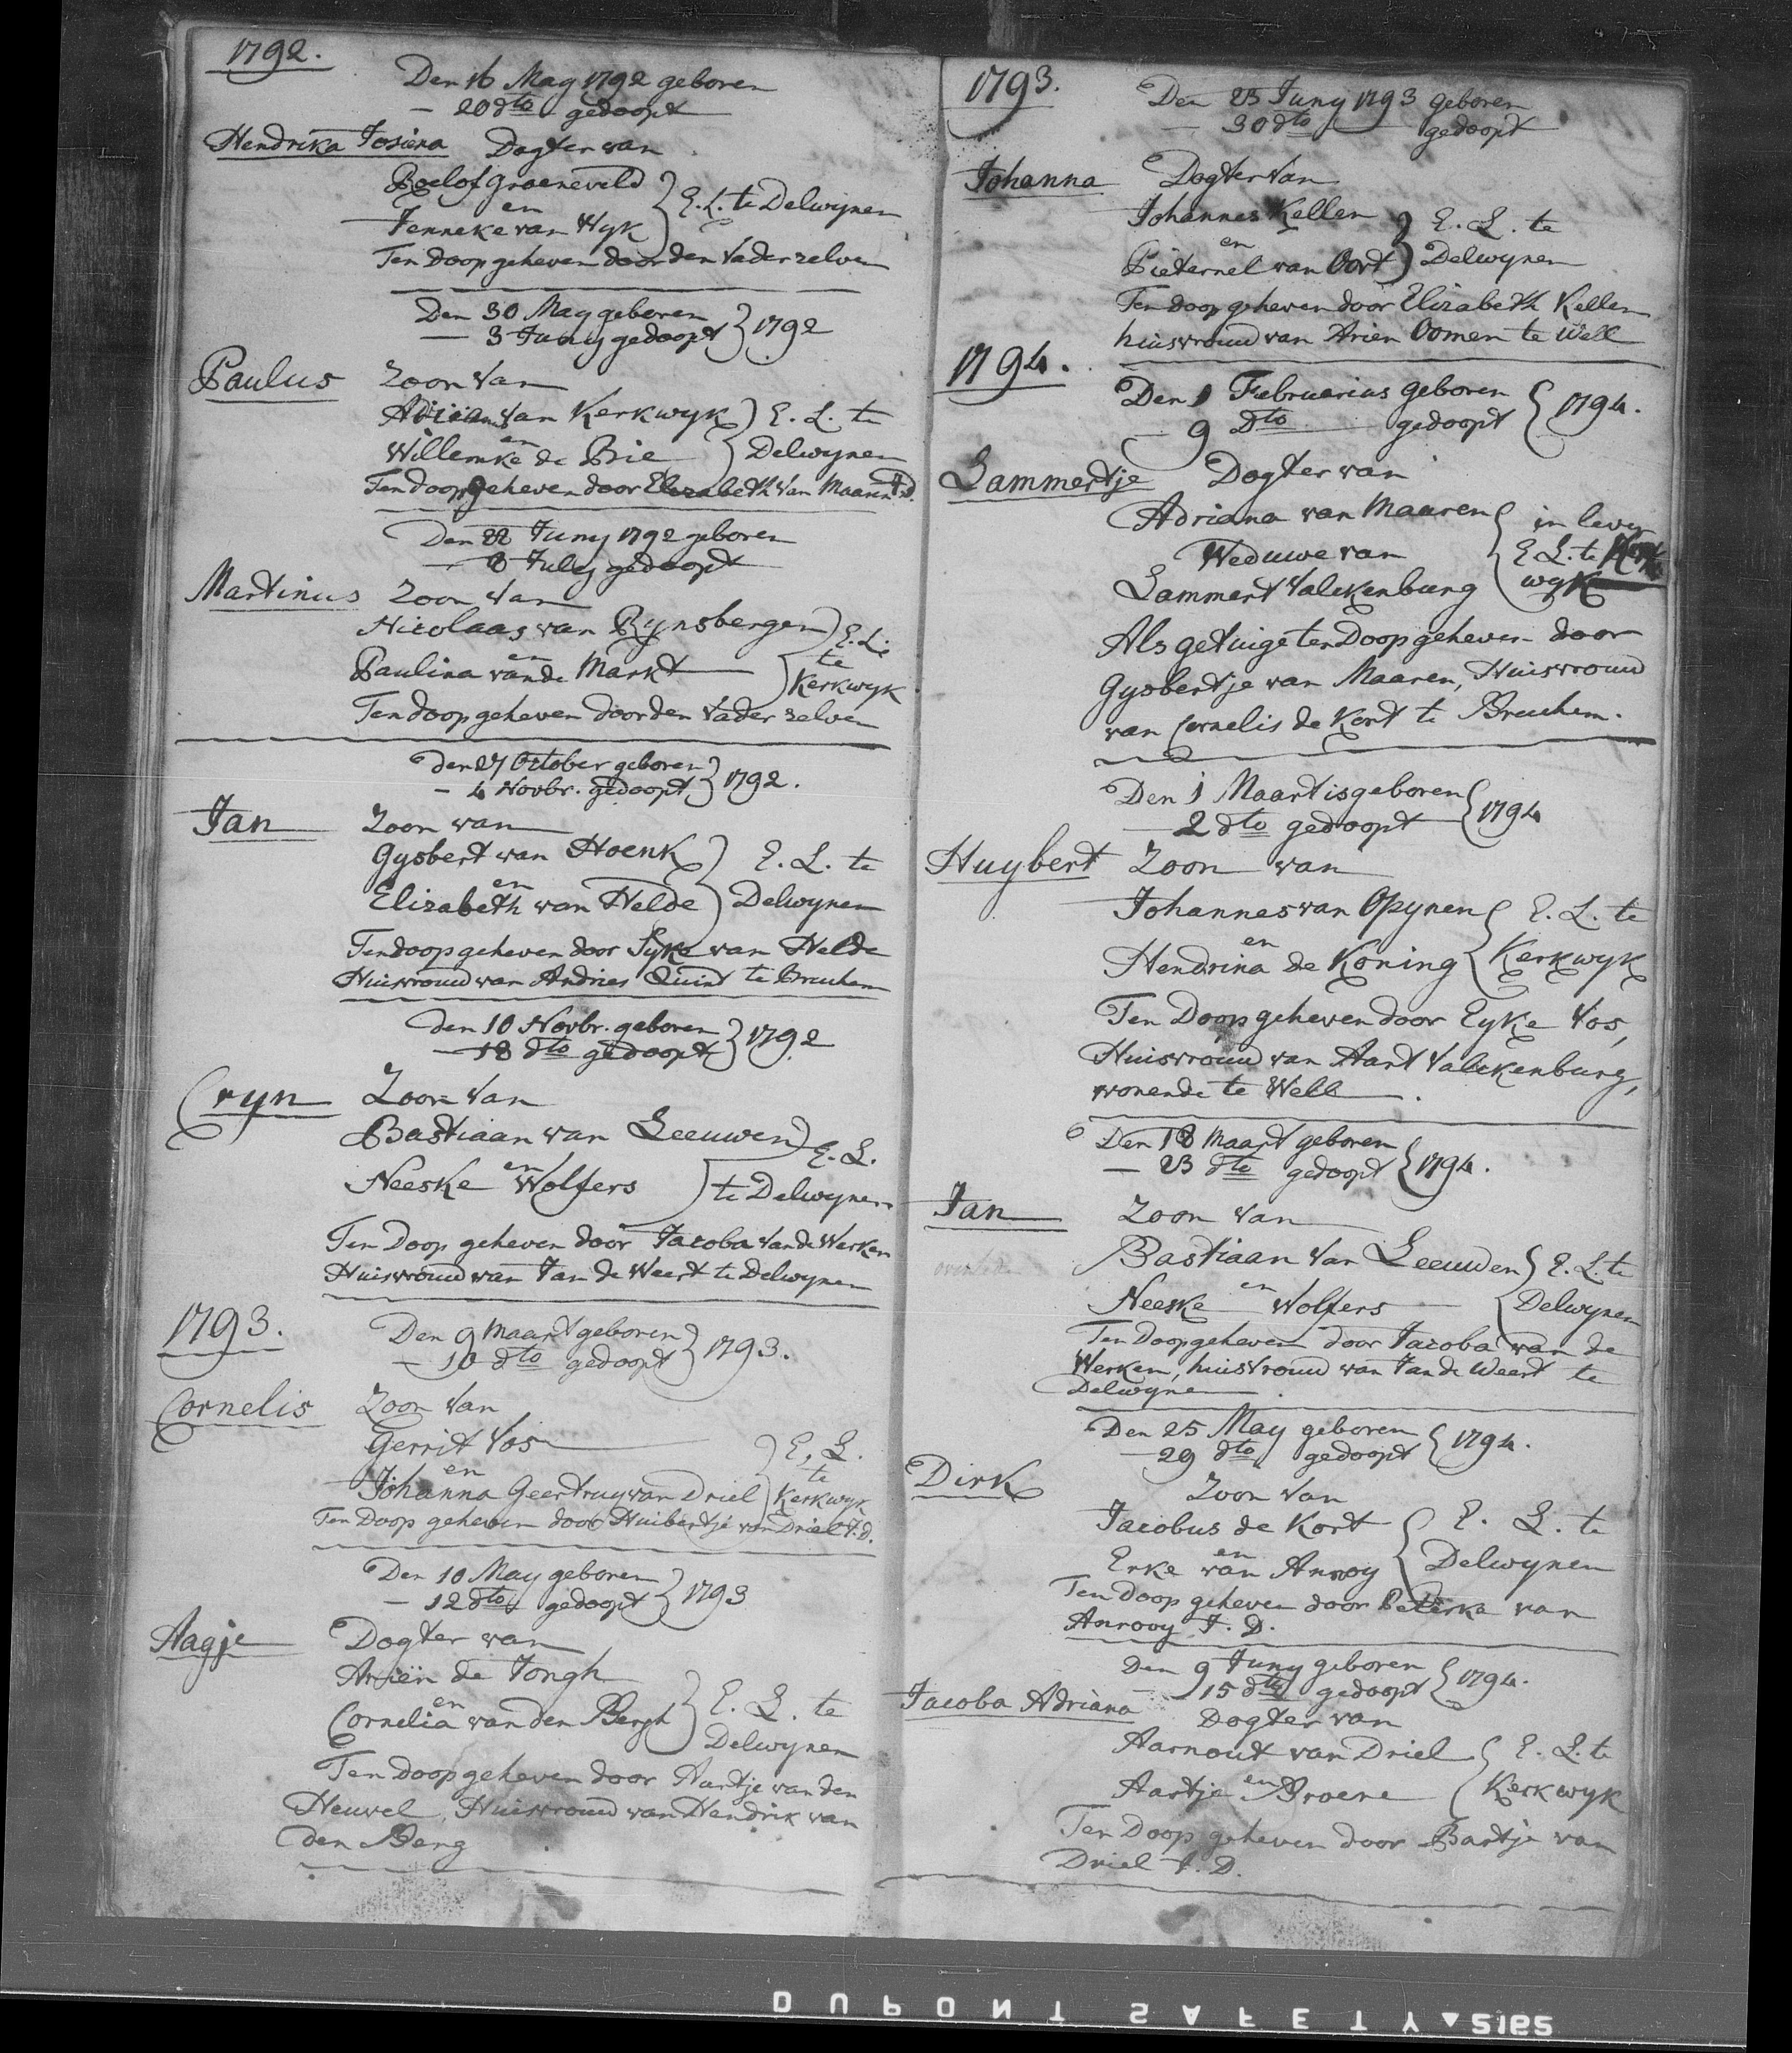 1792.
Den 16 May 1792 geboren
— 20 dto gedoopt
Hendrika Josiena Dogter van
Roelof Groeneveld
en } E. L. te Delwynen
Jenneke van Wyk
Ten Doop geheven door den Vader zelven
Den 30 May geboren
— 3 Juny gedoopt } 1792
Paulus Zoon Van
Adriaan Van Kerkwyk } E. L. te
en
Willemke de Bie } Delwynen
Ten doop geheven door Elizabeth Van Maaren J.D.
Den 22 Juny 1792 geboren
— 8 July gedoopt
Martinus Zoon Van
Nicolaas van Rynsbergen } E. L.
en te
Paulina van de Markt } Kerkwyk
Ten doop geheven door den Vader zelven
Den 27 October geboren
— 4 Novbr. gedoopt } 1792.
Jan Zoon van
Gysbert van Hoenk } E. L. te
en
Elizabeth van Helde } Delwynen
Ten doop geheven door Syke van Helde
Huisvrouw van Andries Quint te Bruchem
Den 10 Novbr. geboren
— 18 dto gedoopt } 1792
Cryn Zoon Van
Bastiaan van Leeuwen } E. L.
en
Neeske Wolfers } te Delwynen
Ten Doop geheven door Jacoba Van de Werken
Huisvrouw van Jan de Weert te Delwynen
1793.
Den 9 Maart geboren
— 10 dto gedoopt } 1793.
Cornelis Zoon Van
Gerrit Vos } E. L.
en te
Johanna Geertruy van Driel } Kerkwyk
Ten Doop geheven door Huibertje van Driel J.D.
Den 10 May geboren
— 12 dto gedoopt } 1793
Aagje Dogter van
Ariën de Jongh
en } E. L. te
Cornelia van den Bergh } Delwynen
Ten doop geheven door Aartje van den
Heuvel, Huisvrouw van Hendrik van
den Berg
1793.
Den 23 Juny 1793 geboren
— 30 dto gedoopt
Johanna Dogter Van
Johannes Kellen } E. L. te
en
Pieternel van Oort } Delwynen
Ten doop geheven door Elizabeth Kellen
huisvrouw van Arien Oomen te Well
1794.
Den 1 Februarius geboren
— 9 Dto gedoopt } 1794.
Lammertje Dogter van
Adriana van Maaren { in leven
Weduwe van { E. L. te Kerk
Lammert Valckenburg { wyk
Als getuige ten Doop geheven door
Gysbertje van Maaren, Huisvrouw
van Cornelis de Kort te Bruchem.
Den 1 Maart is geboren
— 2 dto gedoopt } 1794
Huybert Zoon van
Johannes van Opynen { E. L. te
en
Hendrina de Koning { Kerkwyk
Ten Doop geheven door Eyke Vos,
Huisvrouw van Aart Valckenburg,
wonende te Well.
Den 18 Maart geboren
— 23 dto gedoopt } 1794.
Jan Zoon Van
overleden Bastiaan Van Leeuwen { E. L. te
en
Neeske Wolfers { Delwynen
Ten Doop geheven door Jacoba van de
Werken, huisvrouw van Jan de Weert te
Delwynen.
Den 25 May geboren
— 29 dto gedoopt { 1794.
Dirk
Zoon Van
Jacobus de Kort { E. L. te
en
Erke van Anrooy { Delwynen
Ten Doop geheven door Peterke van
Anrooy J. D.
Den 9 Juny geboren
— 15 dto gedoopt { 1794.
Jacoba Adriana Dogter van
Aarnout van Driel { E. L. te
en
Aartje Broere { Kerkwyk
Ten Doop geheven door Bartje van
Driel J. D.
DUPONT SAFETY 5185